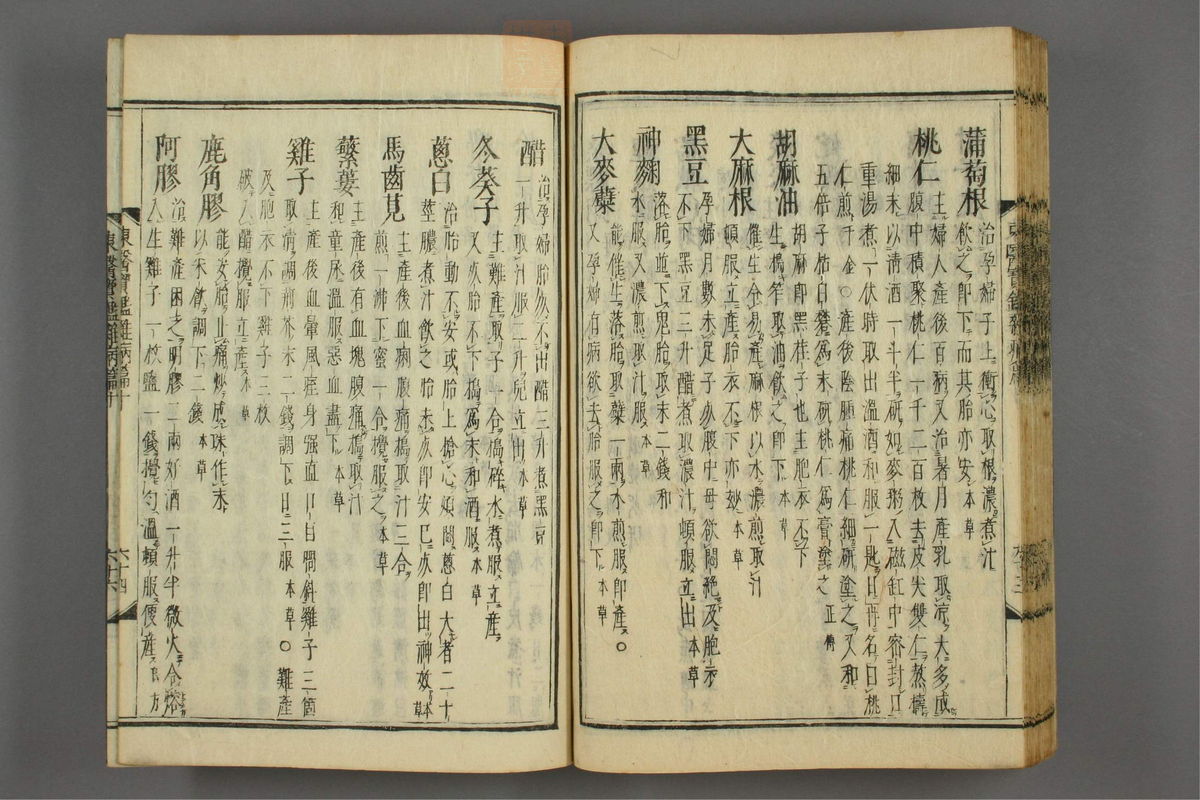 蒲萄根 治孕婦子上衝心取根濃煮汁
飲之卽下而其胎亦安 本草
桃仁 主婦人產後百病又治暑月產乳取涼大多成
腹中積聚桃仁一千二百枚去皮尖雙仁熬擣
細末以淸酒一斗半硏如麥粥入磁缸中密封口
重湯煮一伏時取出溫酒和服一匙日再名曰桃
仁煎 千金○產後陰腫痛桃仁細硏塗之又和
五倍子枯白礬爲末硏桃仁爲膏塗之 正傳
胡麻油 胡麻卽黑荏子也主胞衣不下
生擣笮取油飲之卽下 本草
大麻根 催生令易產麻根以水濃煎取汁
頓服立產胎衣不下亦妙 本草
黑豆 孕婦月數未足子死腹中母欲悶絶及胞衣
不下黑豆三升醋煮取濃汁頓服立出 本草
神麴 落胎並下鬼胎取末二錢和
水服又濃煎取汁服 本草
大麥蘗 能催生落胎取蘗一兩水煎服卽產○
又孕婦有病欲去胎服之卽下 本草
醋 治孕婦胎死不出醋三升煮黑豆
一升取汁服二升兒立出 本草
冬葵子 主難產取子一合擣碎水煮服立產
又死胎不下擣爲末和酒服 本草
蔥白 治胎動不安或胎上搶心煩悶蔥白大者二十
莖膿煮汁飲之胎未死卽安已死卽出神效 本草
馬齒莧 主產後血痢腹痛擣取汁三合
煎一沸下蜜一合攪服之 本草
蘩蔞 主產後有血塊腹痛擣取汁
和童尿溫服惡血盡下 本草
雞子 主產後血暈風痓身强直口目喎斜雞子三箇
取淸調荊芥末二錢調下日三服 本草○難產
及胞衣不下雞子三枚
破入醋攪服立產 本草
鹿角膠 能安胎止痛炒成珠作末
以米飲調下二錢 本草
阿膠 治難產困乏明膠二兩好酒一升半微火令熔
入生雞子一枚鹽一錢攪勻溫頓服便產 良方
東醫寶鑑雜病篇十